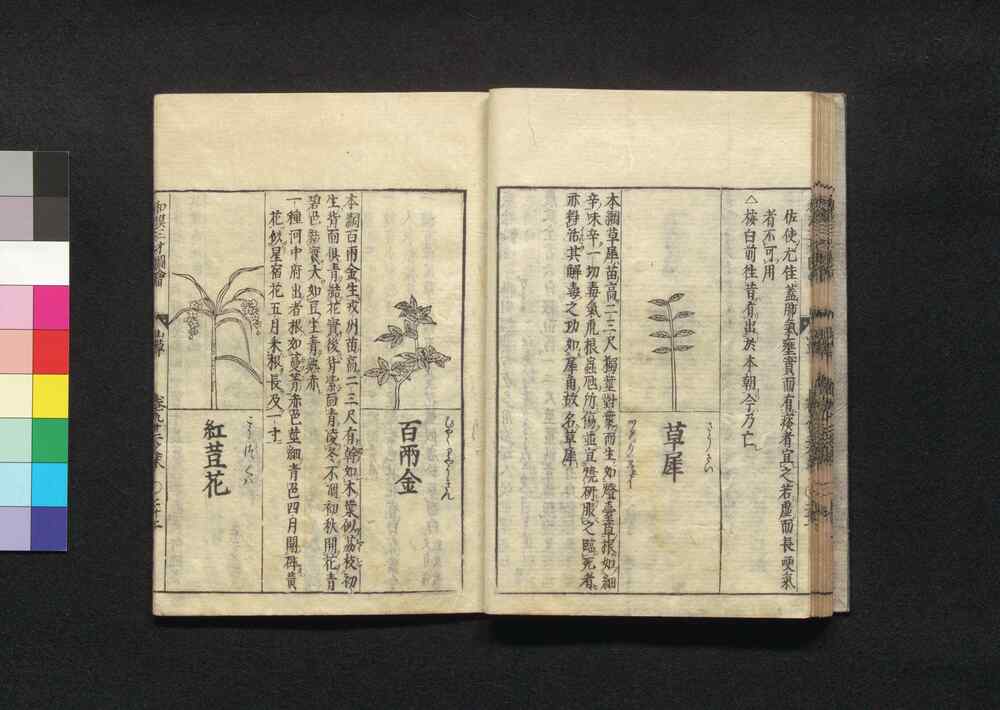 佐使尤佳蓋肺氣壅實而有痰者宜之若虛而長哽氣
者不可用
△按白前往昔有出於本朝今乃亡
さうさい
草犀
本綱草犀苗高二三尺獨莖對葉而生如燈臺草根如細
辛味辛一切毒氣虎狼蟲虺所傷並宜燒研服之臨死者
亦得活其解毒之功如犀角故名草犀
ひやくりやうきん
百兩金
本綱百兩金生戎州苗高二三尺有幹如木葉似荔枝初
生背面俱青結花實後背紫面青凌冬不凋初秋開花青
碧色結實大如豆生青熟赤
一種河中府出者根如蔓菁赤色莖細青色四月開碎黃
花似星宿花五月采根長及一寸
紅荳花
和漢三才圖會
山草